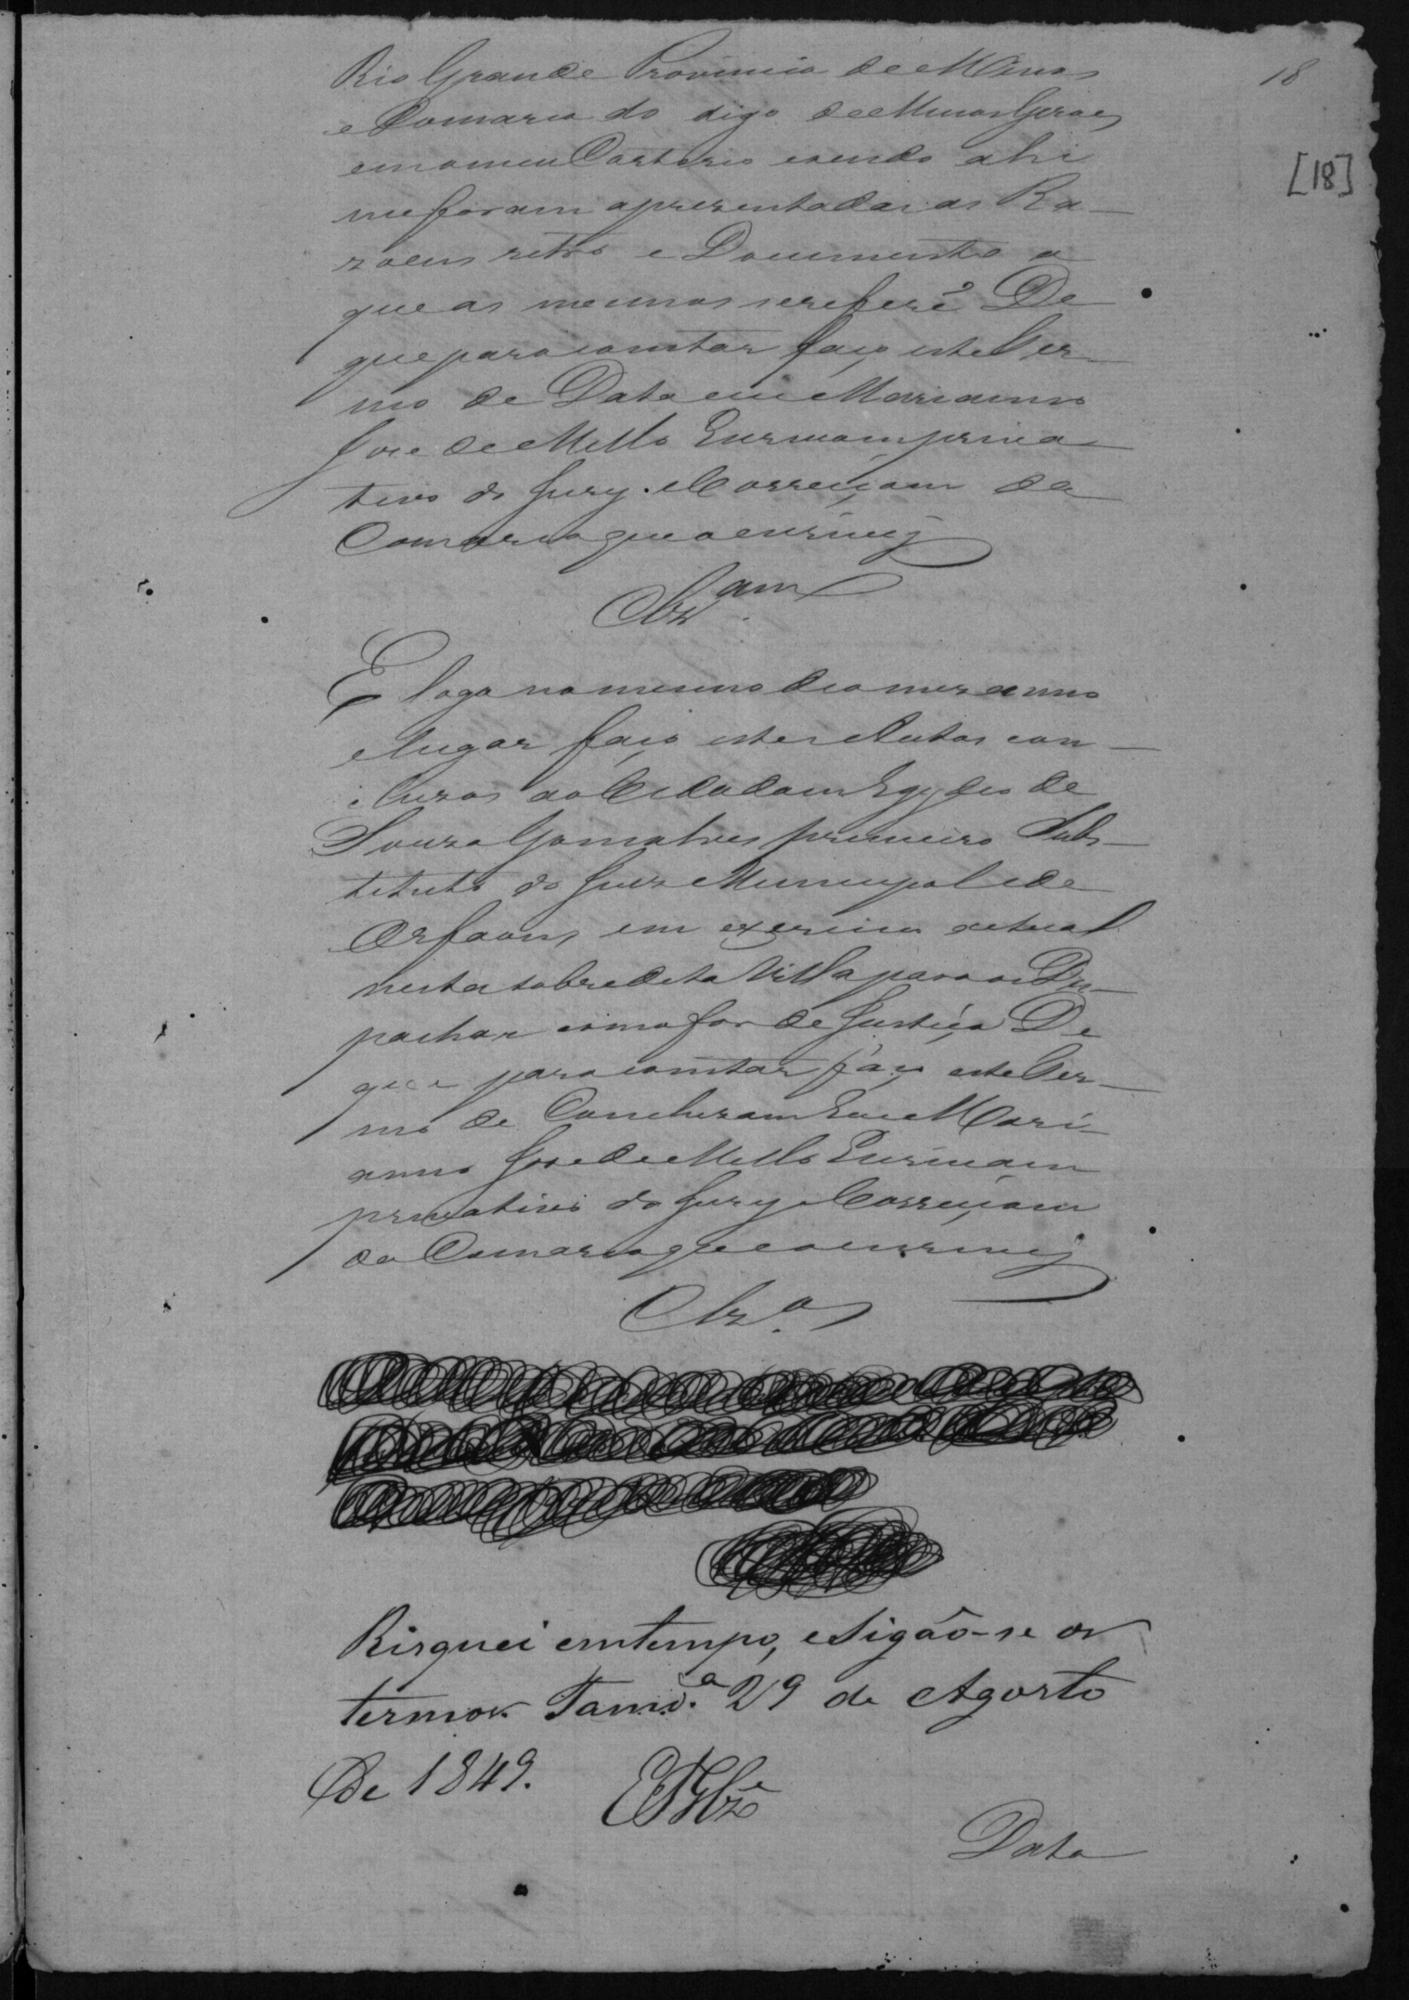 18
[18]
Rio Grande Provincia de Minas
e Comarca do digo de Minas Geraes
em o meu Cartorio e sendo ahi
me foram apresentadas as Ra-
zoens retro e Documento a
que as mesmas se refere De
que para constar faço este Ter-
mo de Data eu Marianno
Jose de Mello Escrivam priva-
tivo do Jury e Correiçam da
Comarca que o escrivy
Clz.am
E logo no mesmo dia mes e anno
e lugar faço estes Autos con-
cluzos ao Cidadam Egydio de
Souza Gonsalves primeiro Subs-
tituto do Juiz Municipal e de
Orfaons em exercicio actual
nesta sobredita Villa para os Des-
pachar como for de Justiça De
que para constar faço este Ter-
mo de Concluzam Eu Mari-
anno Jose de Mello Escrivam
privativo do Jury e Correiçam
da Comarca que o escrivy
Clz.os
Risquei em tempo, e sigão-se os
termos. Tam.a 29 de Agosto
de 1849.
Data